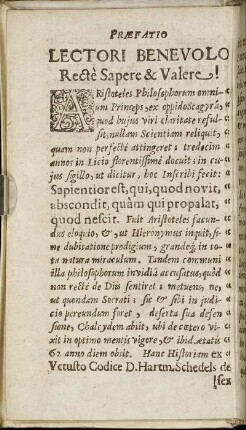 PRÆFATIO
LECTORI BENEVOLO
Rectè Sapere & Valere!
ARistoteles Philosophorum omni-
um Princeps, ex oppido Stagyrâ,
quod hujus viri claritate reful-
sit, nullam Scientiam reliquit,
quam non perfectè attingeret: tredecim
annos in Licio florentissimè docuit: in cu-
jus sgillo, ut dicitur, hoc Inscribi fecit:
Sapientior est, qui, quod novit,
abscondit, quàm qui propalat,
quod nescit. Fuit Aristoteles facun-
dus eloquio, &, ut Hieronymus inquit, si-
ne dubitatione prodigium, grandeq́; in to-
ta natura miraculum. Tandem communi
illa philosophorum invidiâ accusatus, quòd
non rectè de Diis sentiret: metuens, ne,
ut quondam Socrati: sic & sibi in judi-
cio pereundum foret, deserta sua defen
sione, Chalcydem abiit, ubi de cætero vi-
xit in optimo mentis vigore, & ibid. ætatis
62 anno diem obiit. Hanc Historiam ex
Vetusto Codice D. Hartm. Schedels de-